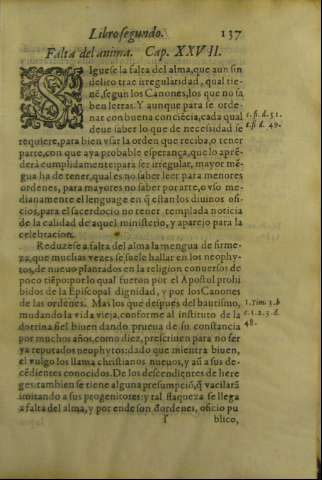 Libro segundo. 137
Falta del anima. Cap. XXVII.
SIguese la falta del alma, que aun sin
delicto trae irregularidad, qual tie-
nẽ, segun los Canones, los que no sa
ben letras. Y aunque para se orde-
nar con buena conciẽcia, cada qual
deue saber lo que de necessidad se
requiere, para bien vsar la orden que reciba, o tener
parte, con que aya probable esperança, que lo aprẽ-
derà cumplidamente: para ser irregular, mayor mẽ-
gua ha de tener, qual es no saber leer para menores
ordenes, para mayores no saber por arte, o vso me-
dianamente el lenguage en q̃ estan los diuinos ofi-
cios, para el sacerdocio no tener templada noticia
de la calidad de aquel ministerio, y aparejo para la
celebracion.
Reduzese a falta del alma la mengua de firme-
za, que muchas vezes se suele hallar en los neophy-
tos, de nueuo plantados en la religion conuersos de
poco tiẽpo: por lo qual fueron por el Apostol prohi
bidos de la Episcopal dignidad, y por los Canones
de las ordenes. Mas los que despues del bautismo,
mudando la vida vieja, conforme al instituto de la
dotrina fiel biuen dando prueua de su constancia
por muchos años, como diez, prescriuen para no ser
ya reputados neophytos: dado que mientra biuen,
el vulgo los llama christianos nueuos, y aũ a sus de-
cẽdientes conocidos. De los descendientes de here
ges: tambien se tiene alguna presumpciõ, q̃ vacilarã
imitando a sus progenitores: y tal flaqueza se llega
a falta del alma, y por ende son d̃ordenes, oficio pu
blico,
1. Timo 3. b
48.